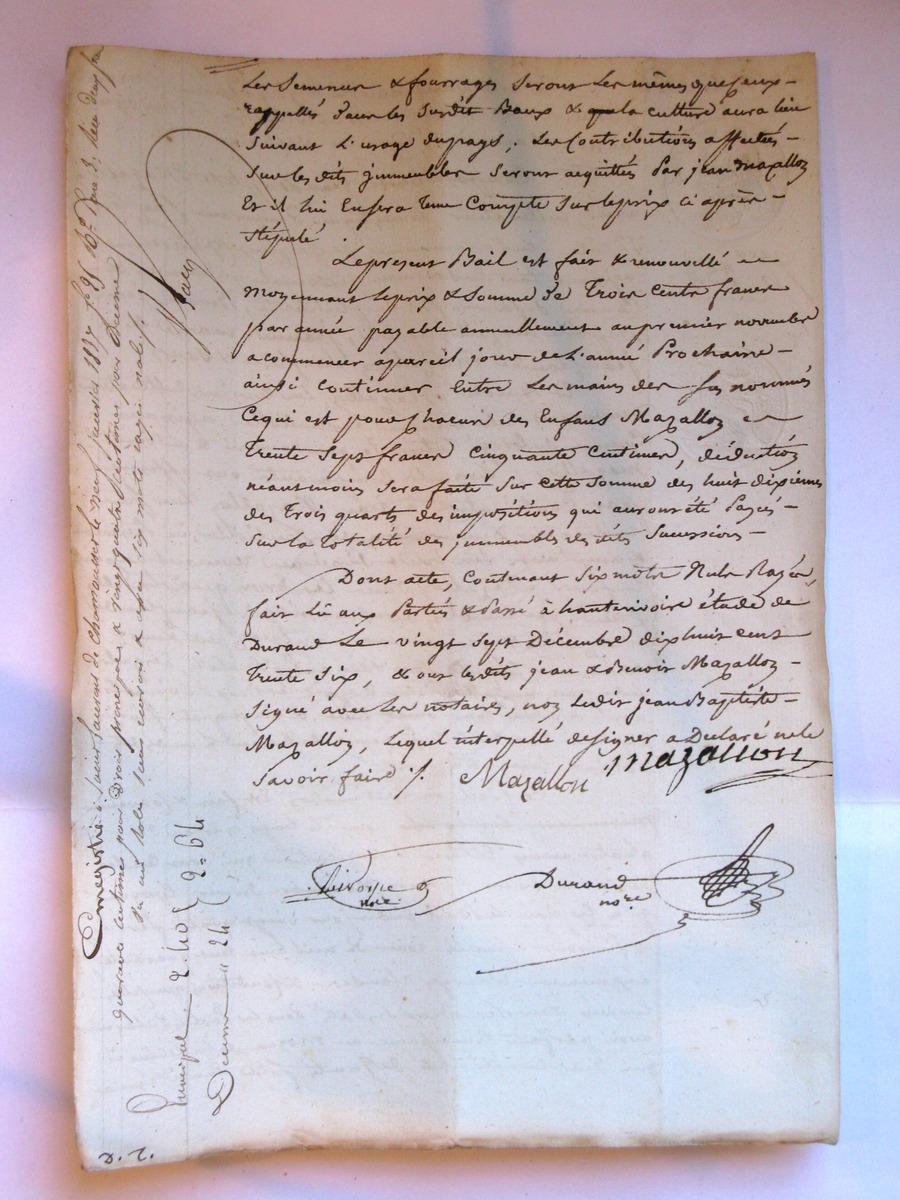 Les Semences & fourrages seront les mêmes que ceux
rappellés dans les susdit Baux & que la culture aura lieu
Suivant L'usage du pays, Les Contributions affectées
Sur les dits immeubles seront acquittés Par jean Mazallon
Et il lui En sera tenu Compte sur le prix ci après
stipulé
Le present Bail est fait & renouvellé
Moyennant le prix & Somme de Trois Cents francs
par année payable annuellement au premier novembre
a commencer a pareil jour de L'année Prochaine
ainsi continuer Entre les mains des Sus nommés
Ce qui est pour chacun des Enfans Mazallon
Trente Sept francs Cinquante Centimes, déduction
néantmoins sera faite sur cette somme des huit dixiemes
des Trois quarts des impositions qui auront été Payés
Sur la totalité des immeubles des dits Sucessions
Dont acte, Contenant Six mots Nuls Rayés,
fait lû aux Parties & Passé à hauterivoire étude de
Durand Le vingt Sept Décembre dix huit cent
Trente Six, & ont les dits jean & Benoit Mazallon
Signé avec les notaires, non Ledit jean Baptiste
Mazallon, Lequel interpellé de signer a Déclaré ne le
savoir faire ./. Mazallon mazallon
nore. Durand
nore
Enregistré à saint Laurent de Chamousset le neuf janvier 1837 f° 95
quarante centimes pour Droit principal & vingt quatre centimes pour Decime
Principal 2. 40
Decime " 24
2=64
D. L.